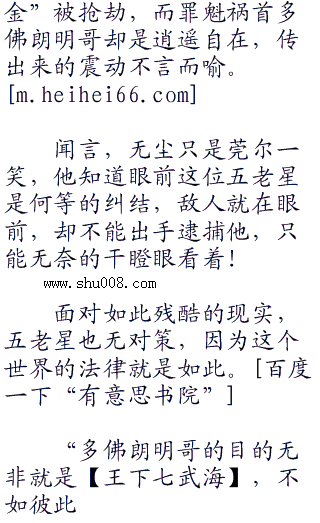 金”被抢劫，而罪魁祸首多
佛朗明哥却是逍遥自在，传
出来的震动不言而喻。
[m.heihei66.com]
闻言，无尘只是莞尔一
笑，他知道眼前这位五老星
是何等的纠结，敌人就在眼
前，却不能出手逮捕他，只
能无奈的干瞪眼看着！
www.shu008.com
面对如此残酷的现实，
五老星也无对策，因为这个
世界的法律就是如此。[百度
一下“有意思书院”]
“多佛朗明哥的目的无
非就是【王下七武海】，不
如彼此